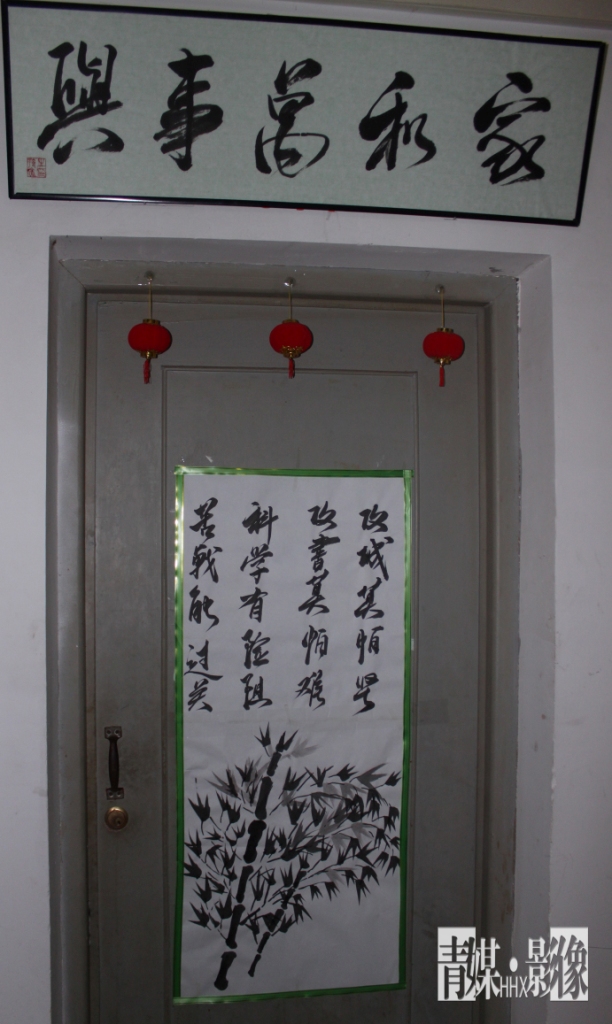 家和萬事興
攻城莫怕坚
攻書莫怕难
科学有险阻
苦战能过关
青媒·影像
HHX